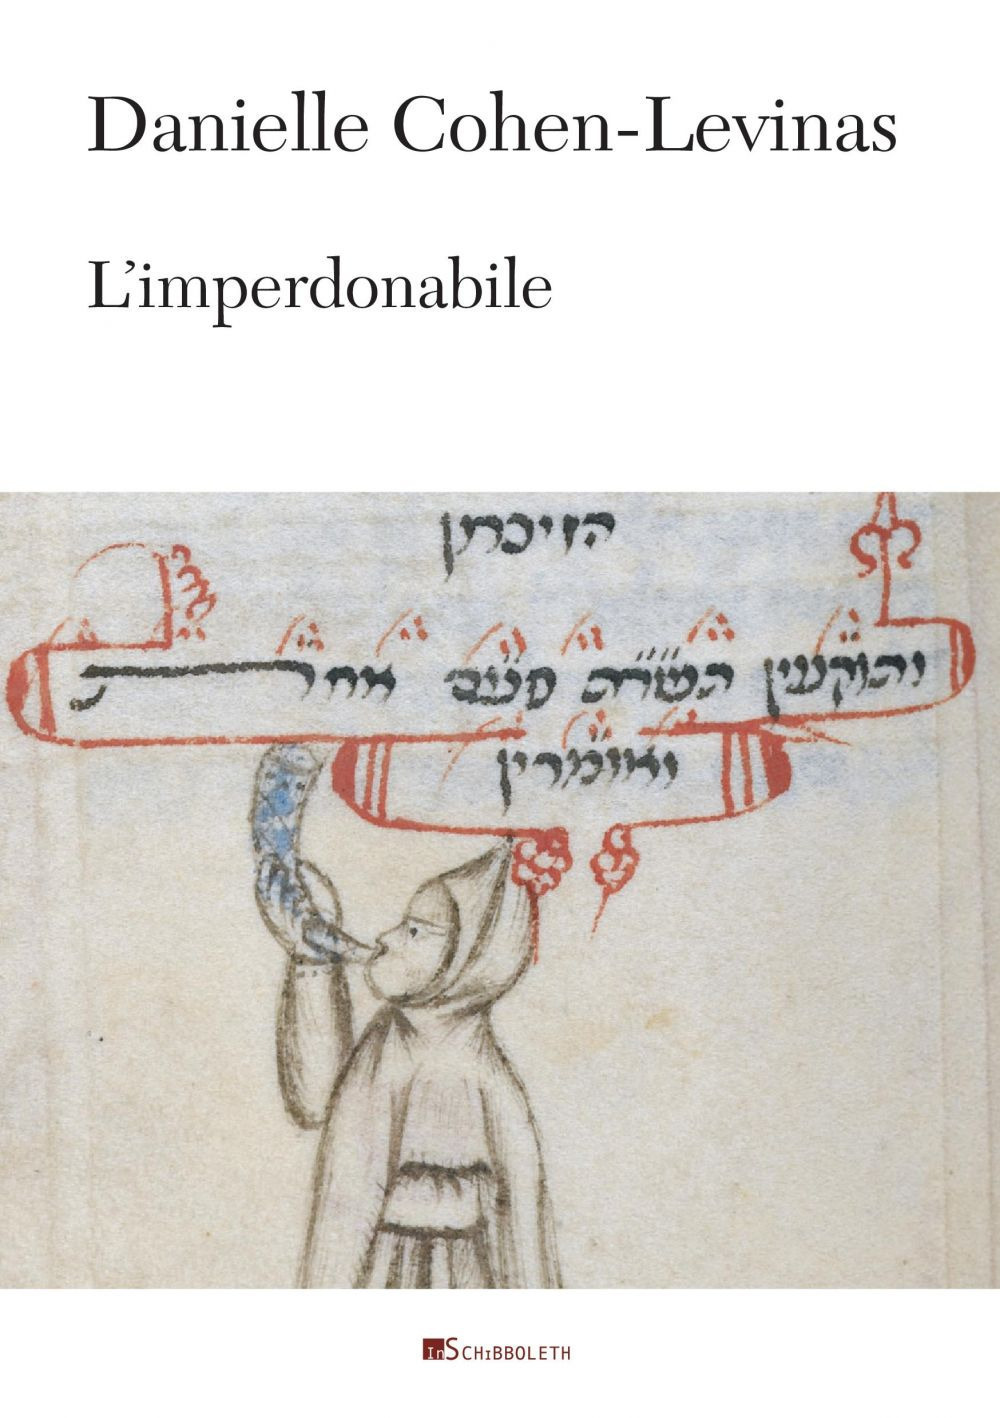 Danielle Cohen-Levinas
L'imperdonabile
הזיכרון
ותוקעין תשר״ת פעם אחת
ואומרין
InSCHiBBOLETH